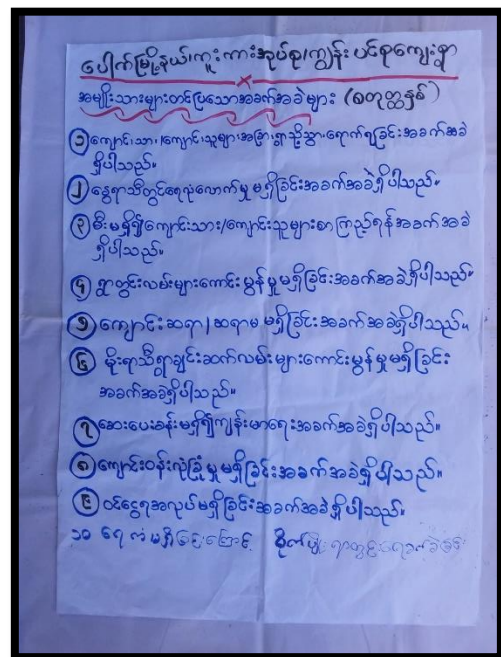 ပေါက်မြို့နယ်၊ကူးကားအုပ်စု၊ကျွန်းပင်စုကျေးရွာ
အမျိုးသားများတင်ပြသောအခက်အခဲများ (စတုတ္ထနှစ်)
၁ ကျောင်းသား၊ကျောင်းသူများအခြားရွာသို့သွားရောက်ရခြင်းအခက်အခဲ
ရှိပါသည်။
၂ နွေရာသီတွင်ရေလုံလောက်မှုမရှိခြင်းအခက်အခဲရှိပါသည်။
၃ မီးမရှိ၍ကျောင်းသား/ကျောင်းသူများစာကြည့်ရန်အခက်အခဲ
ရှိပါသည်။
၄ ရွာတွင်းလမ်းများကောင်းမွန်မှုမရှိခြင်းအခက်အခဲရှိပါသည်။
၅ ကျောင်းဆရာ/ဆရာမ မရှိခြင်းအခက်အခဲရှိပါသည်။
၆ မိုးရာသီရွာချင်းဆက်လမ်းများကောင်းမွန်မှုမရှိခြင်း
အခက်အခဲရှိပါသည်။
၇ ဆေးပေးခန်းမရှိ၍ကျန်းမာရေးအခက်အခဲရှိပါသည်။
၈ ကျောင်းဝန်းလုံခြုံမှုမရှိခြင်းအခက်အခဲရှိပါသည်။
၉ ဝင်ငွေရအလုပ်မရှိခြင်းအခက်အခဲရှိပါသည်။
၁၀ ရေကံမရှိခြင်းကြောင့် စိုက်ပျိုး